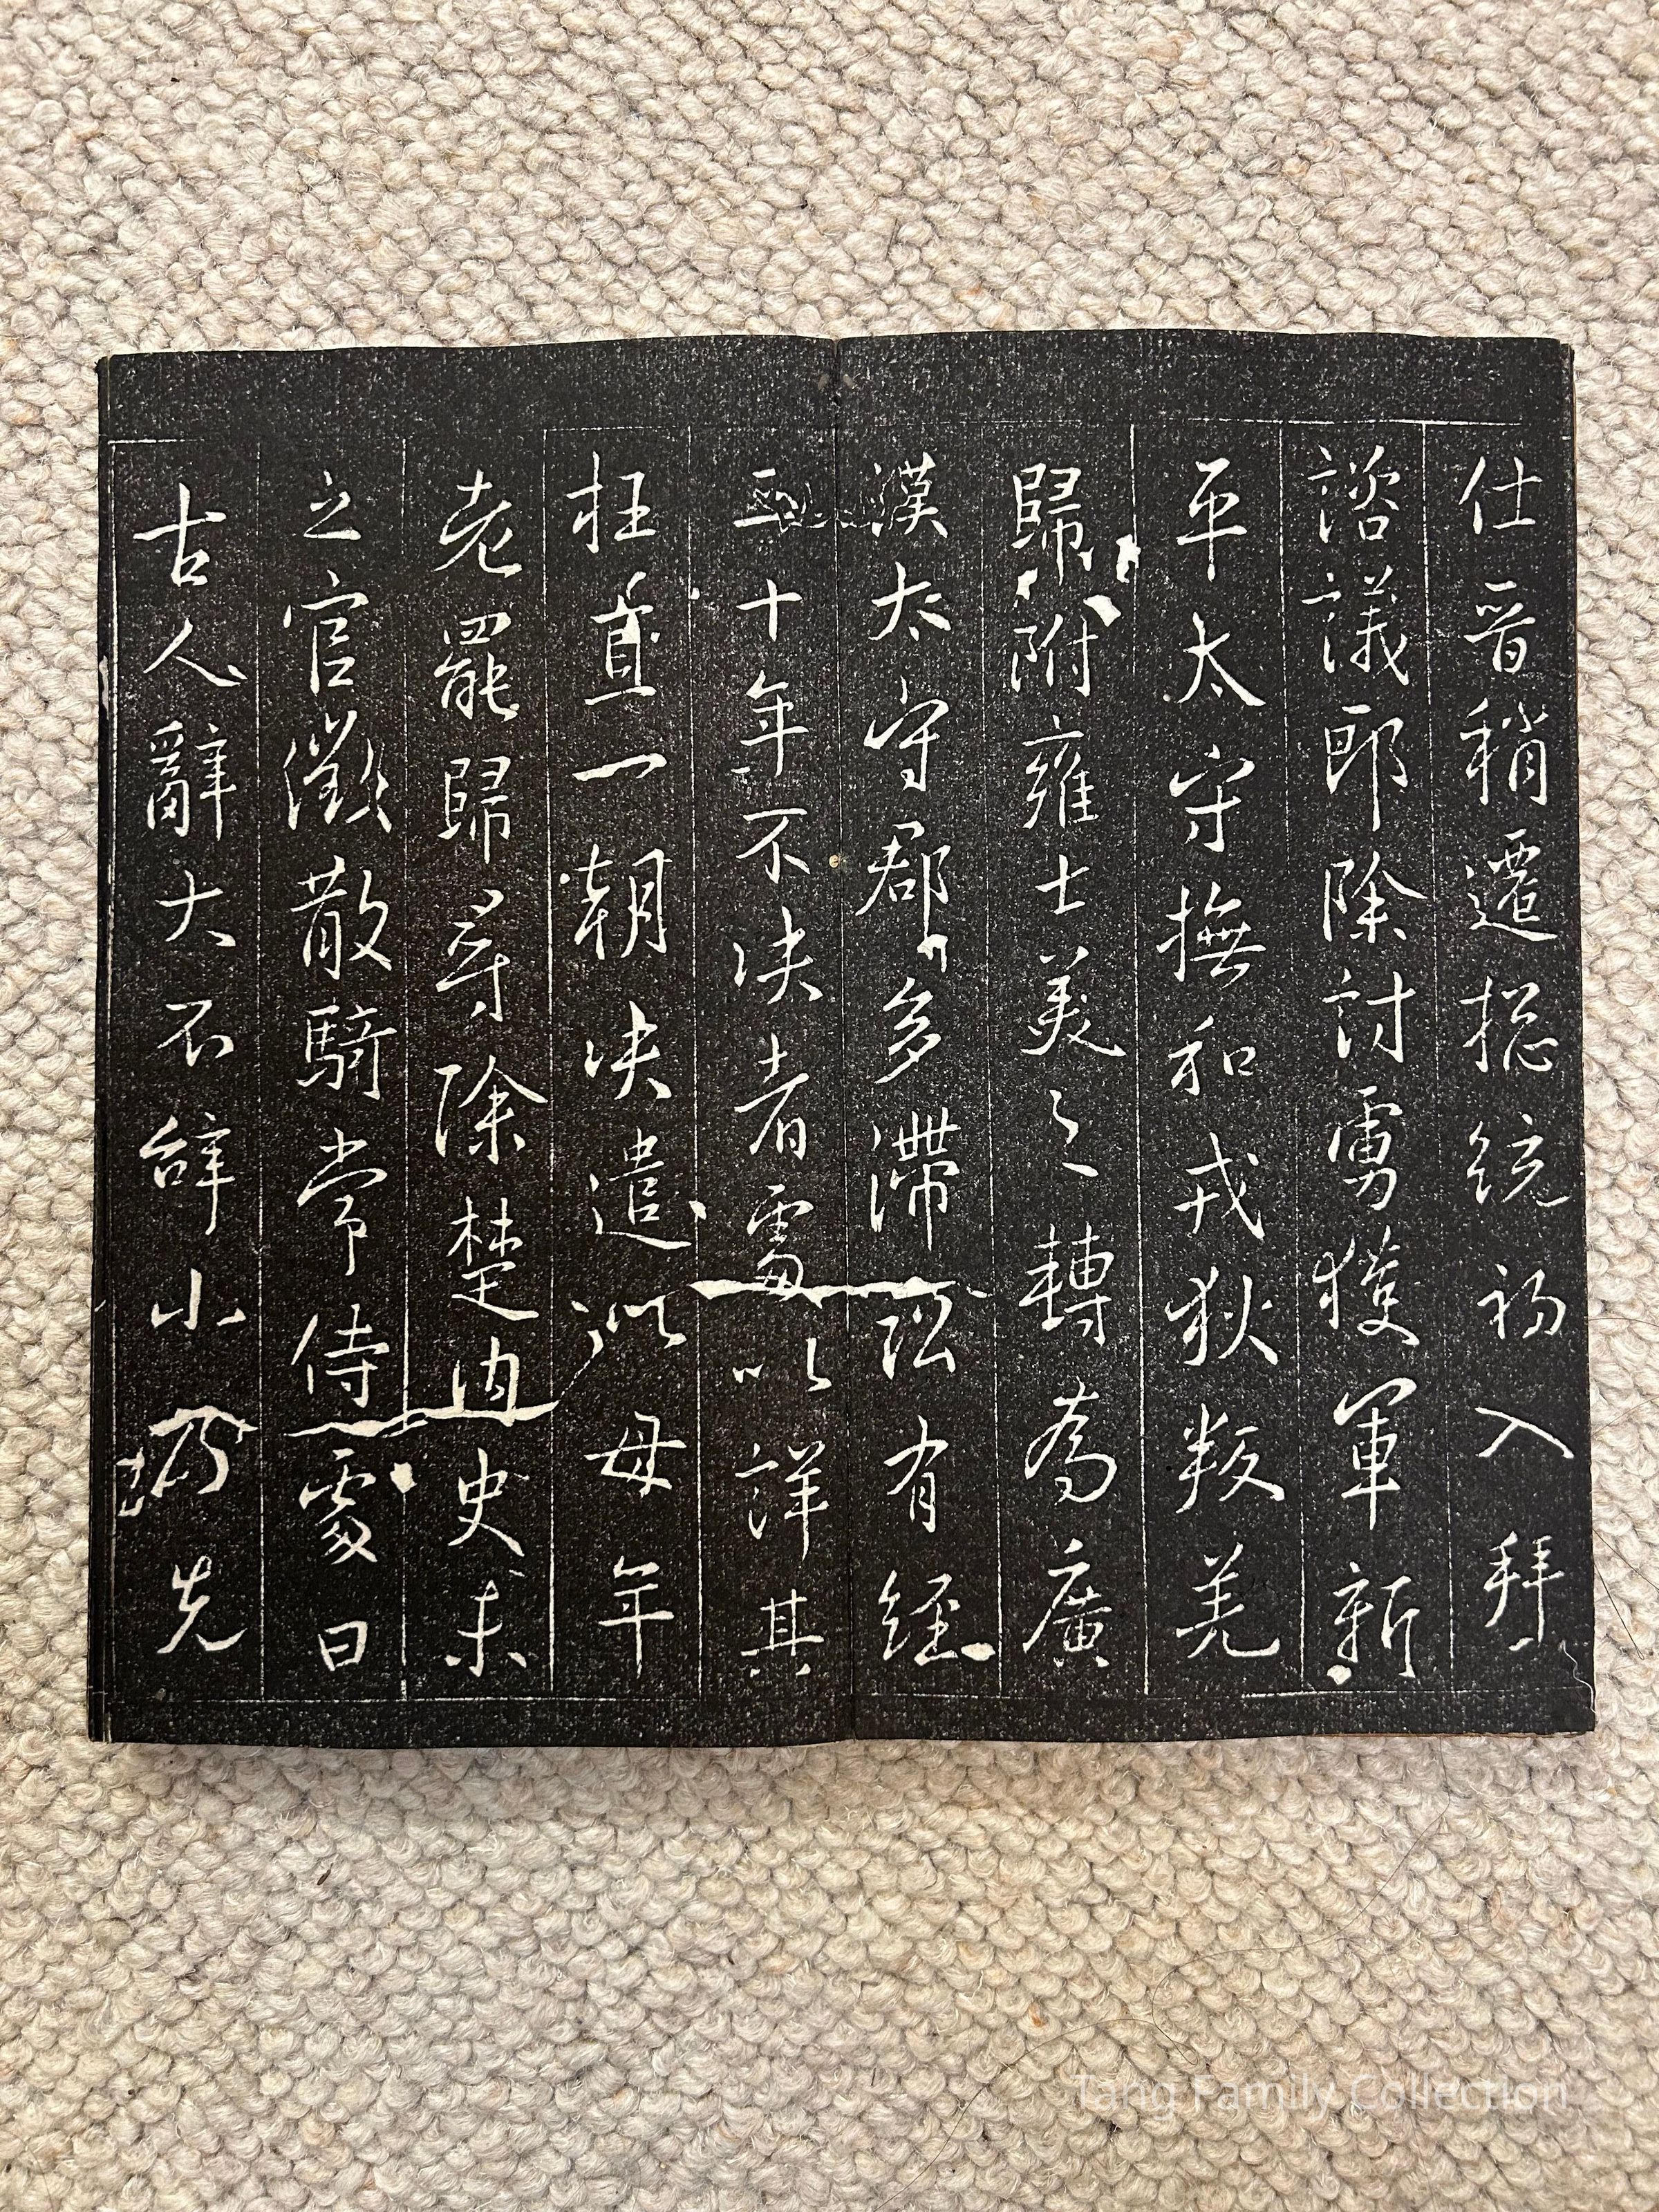 仕晉稍遷揔統初入拜
諮議郎除討虜獲軍新
平太守撫和戎狄叛羌
歸附雍士美之轉為廣
漢太守郡多滯訟有經
三十年不決者處以詳其
枉直一朝決遣以母年
老罷歸尋除楚內史未
之官徵散騎常侍處曰
古人辭大不辞小乃先
Tang Family Collection